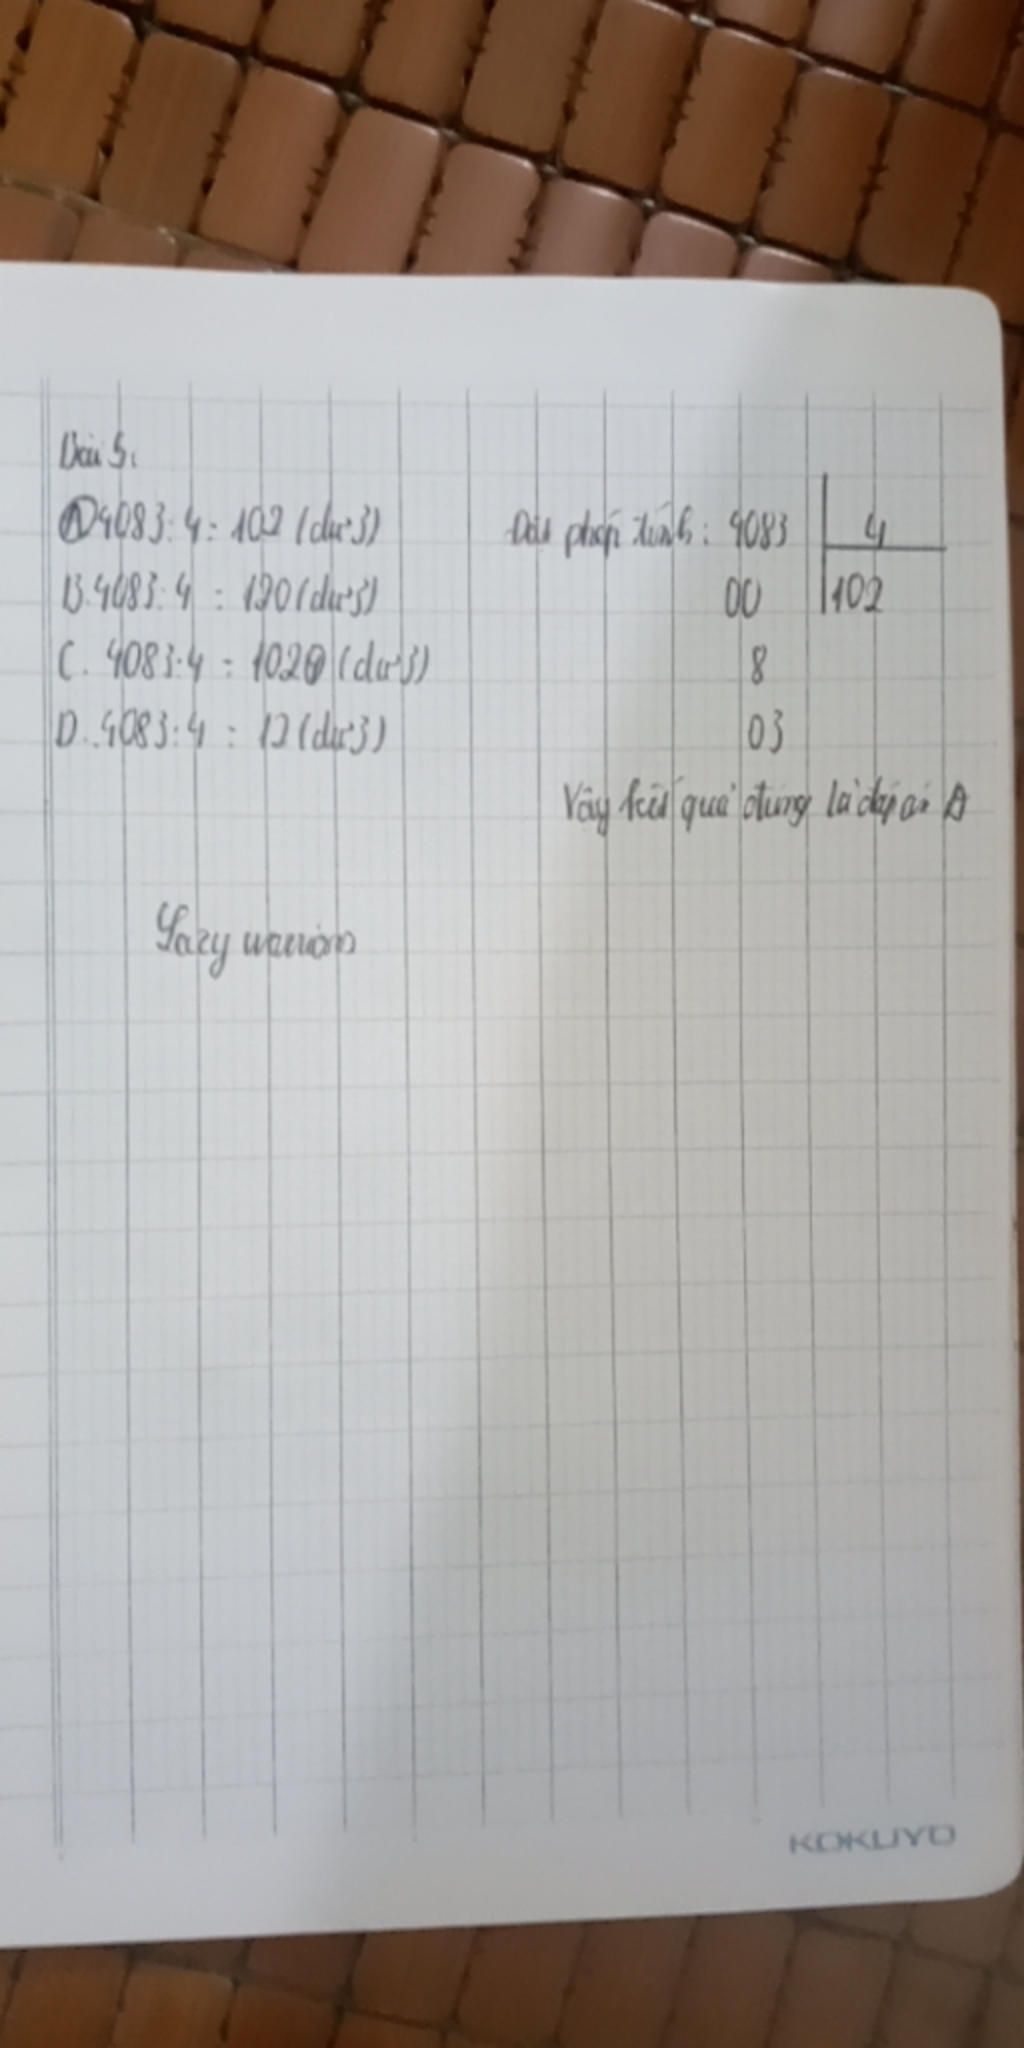 Bài 5:
A 4083 : 4 = 102 (dư 3)
B. 4083 : 4 = 120 (dư 3)
C. 4083 : 4 = 1020 (dư 3)
D. 4083 : 4 = 12 (dư 3)
Đặt phép tính : 4083 4
00 102
8
03
Vậy kết quả đúng là đáp án A
Lazy warriors
KOKUYO